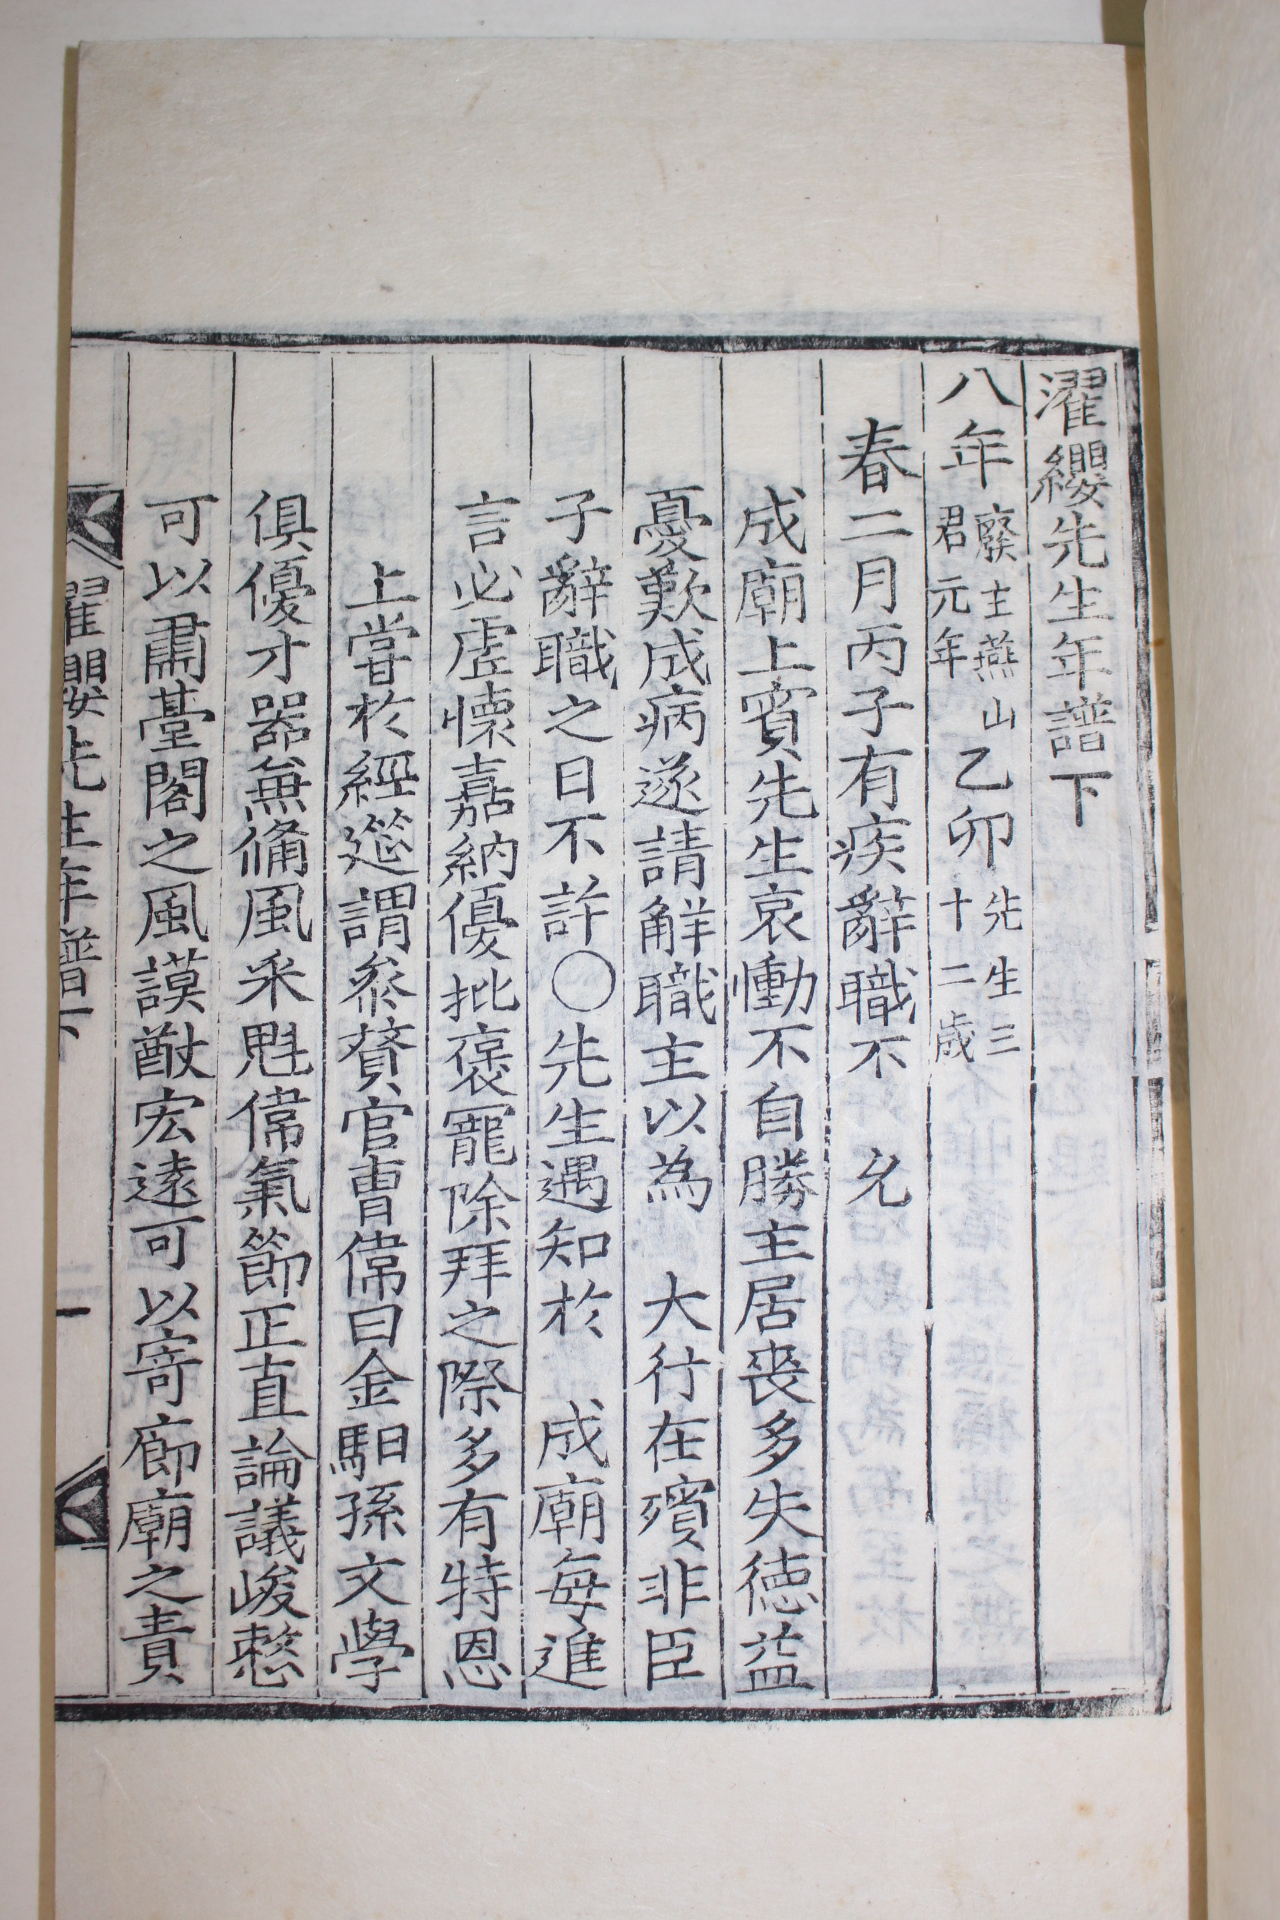 濯纓先生年譜下
八年廢主燕山君元年乙卯先生三十二歲
春二月丙子有疾辭職不 允
成廟上賓先生哀慟不自勝主居喪多失德益
憂歎成病遂請解職主以為 大行在殯非臣
子辭職之日不許○先生遇知於 成廟每進
言必虛懷嘉納優批褒寵除拜之際多有特恩
上嘗於經筵謂參贊官曹偉曰金馹孫文學
俱優才器無備風采魁偉氣節正直論議峻慤
可以肅臺閣之風謨猷宏遠可以寄廊廟之責
濯纓先生年譜下 一